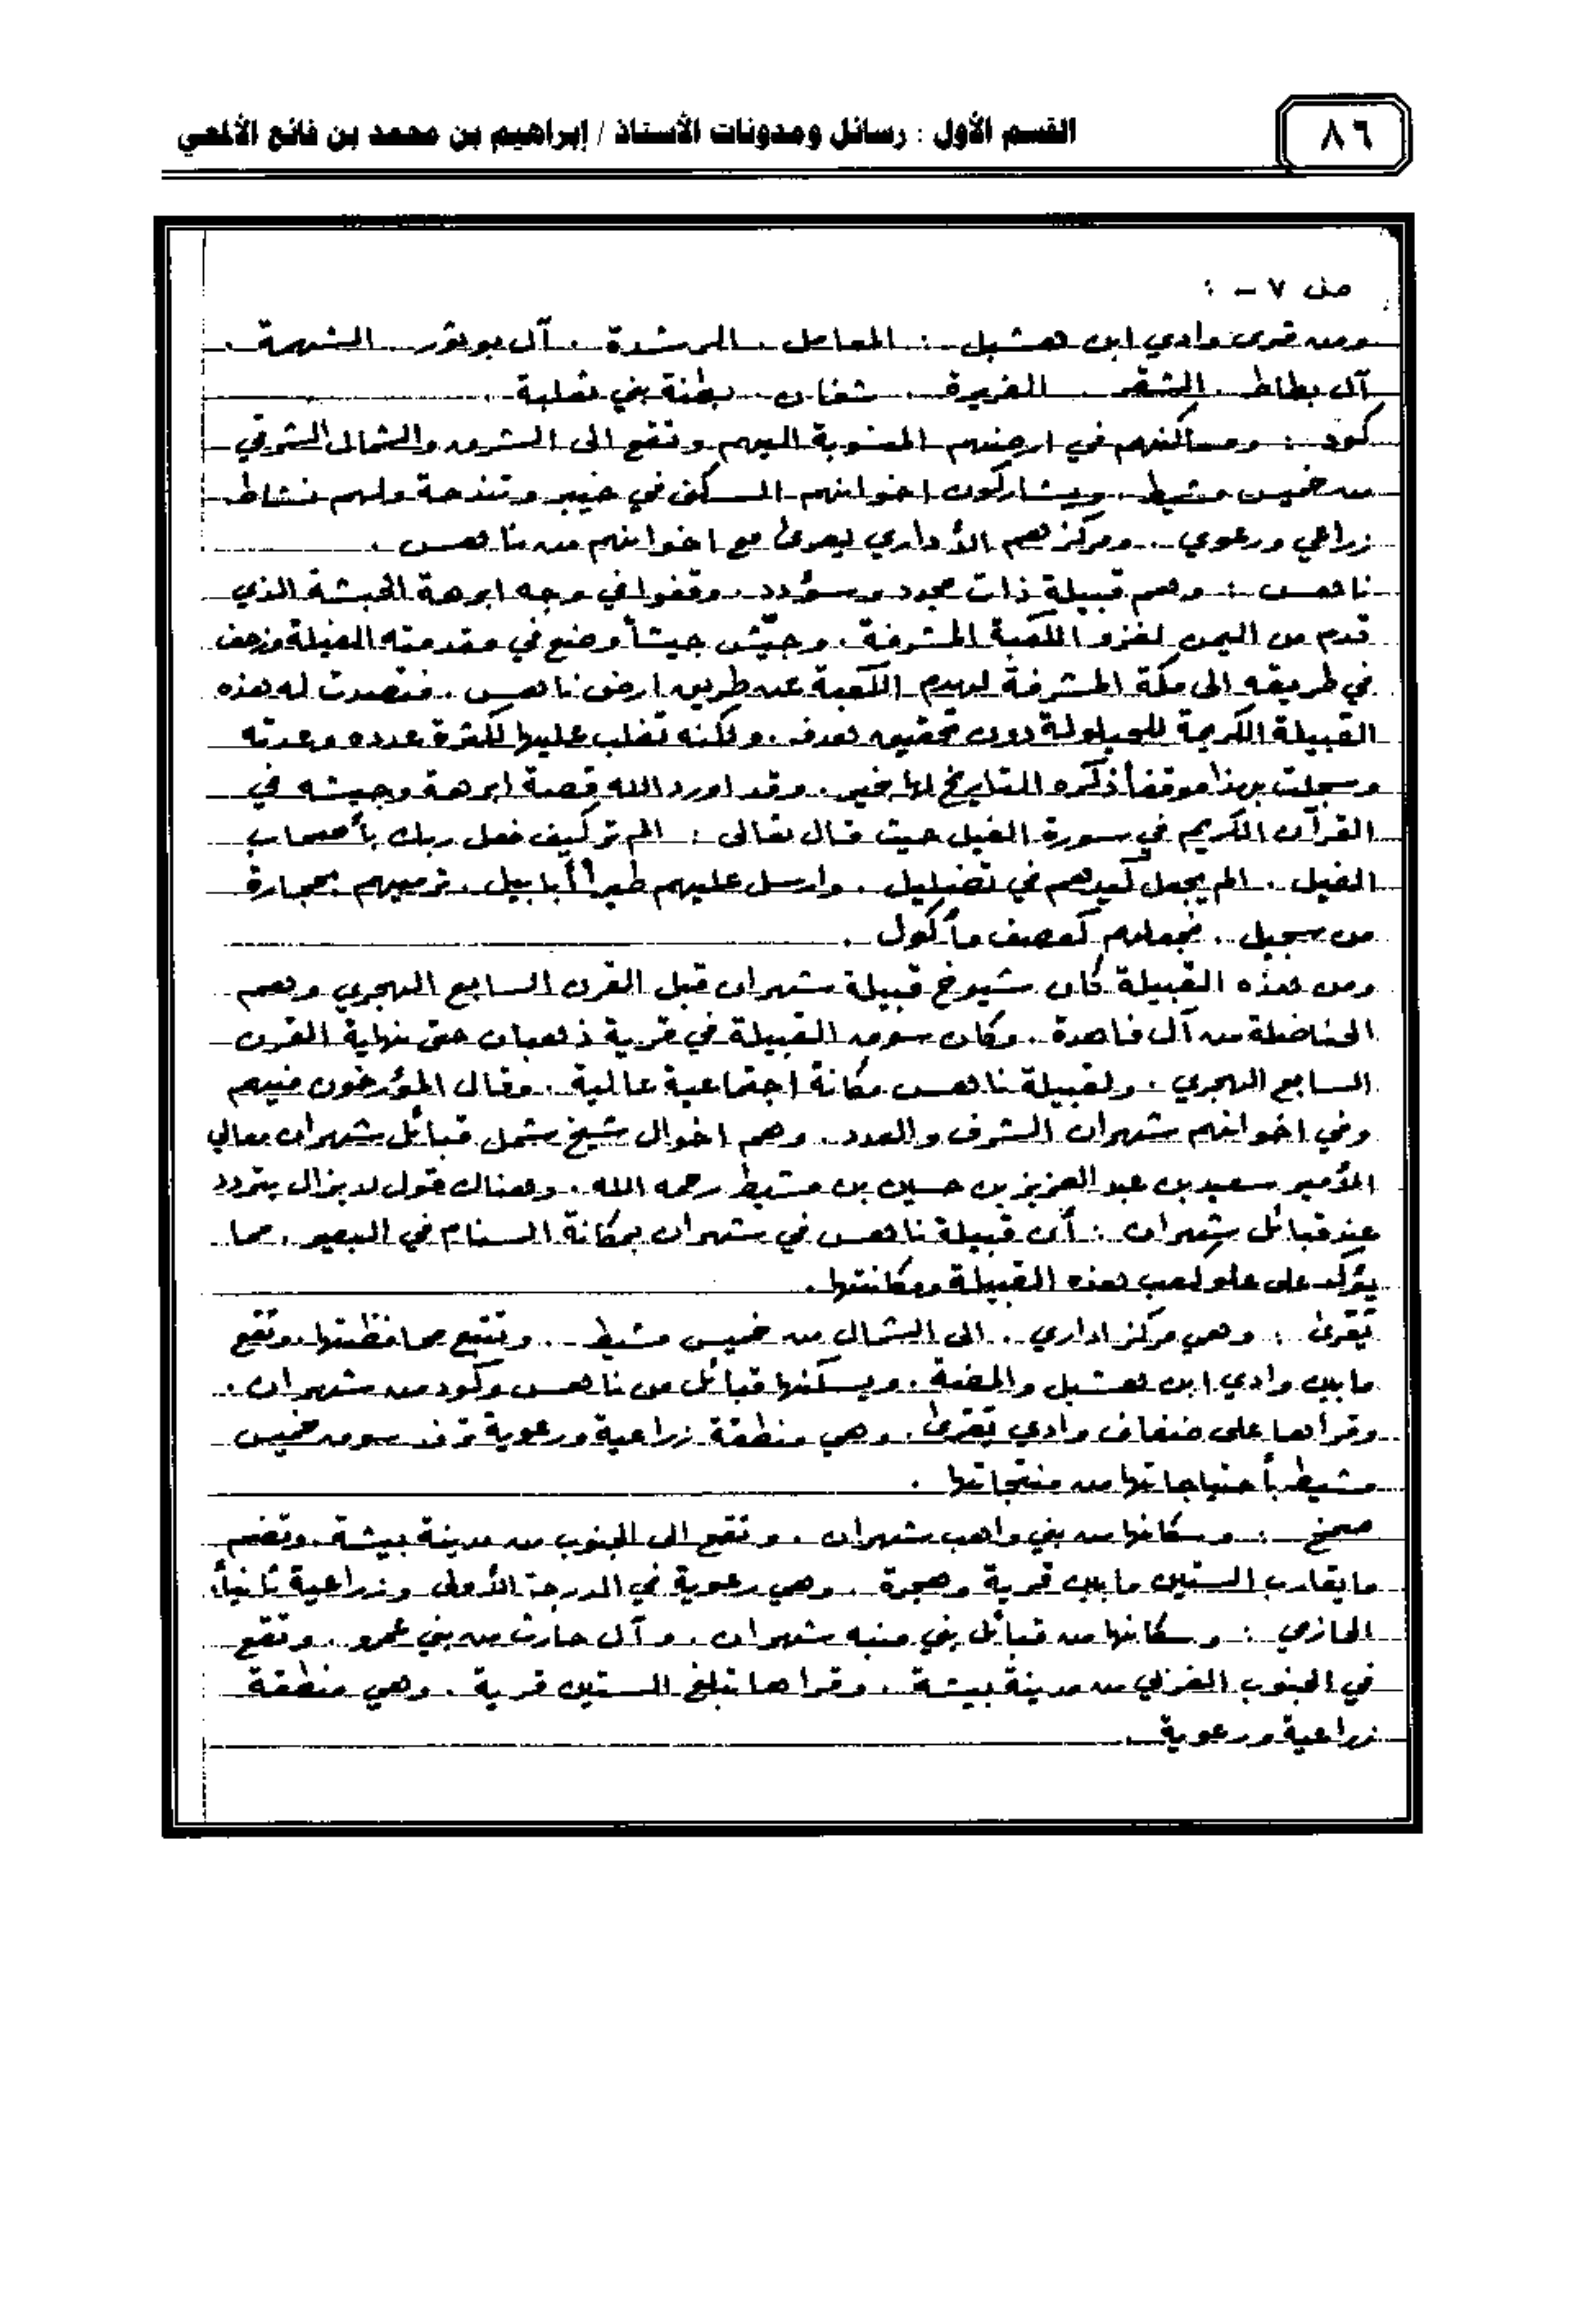 ٨٦
القسم الأول : رسائل ومدونات الأستاذ / إبراهيم بن محمد بن فائع الألمعي
ص ٧ - :
ومن قرى وادي ابن هشبل : المعامل . الرشدة . آل بوثور . الشهمة .
آل بطاط . الشقر . الغريرة . شغان . بطنة بني ثعلبة .
كود : ومساكنهم في ارضهم المنسوبة اليهم وتقع الى الشرق والشمال الشرقي
من خميس مشيط . ويشاركون اخوانهم السكن في خيبر وتندحة ولهم نشاط
زراعي ورعوي . ومركزهم الأداري يعرى مع اخوانهم من ناهس .
ناهس : وهم قبيلة ذات مجود وسؤدد . وقفوا في وجه ابرهة الحبشة الذي
قدم من اليمن لغزو الكعبة المشرفة . وجيّش جيشاً وضع في مقدمته الفيلة وزحف
في طريقه الى مكة المشرفة ليهدم الكعبة عن طريق ارض ناهس . فتصدت له هذه
القبيلة الكريمة للحيلولة دون تحقيق هدفه . ولكنه تغلب عليها لكثرة عدده وعدته
وسجلت بهذا موقفاً ذكره التاريخ لها بخير . وقد اورد الله قصة ابرهة وجيشه في
القرآن الكريم في سورة الفيل حيث قال تعالى : الم تر كيف فعل ربك بأصحاب
الفيل . الم يجعل كيدهم في تضليل . وارسل عليهم طيراً أبابيل . ترميهم بحجارة
من سجيل . فجعلهم كعصف مأكول .
ومن هذه القبيلة كان شيوخ قبيلة شهران قبل القرن السابع الهجري وهم
الحناضلة من آل فاهدة . وكان سوق القبيلة في قرية ذهبان حتى نهاية القرن
السابع الهجري . ولقبيلة ناهس مكانة اجتماعية عالية . وقال المؤرخون فيهم
وفي اخوانهم شهران الشرف والعدد . وهم اخوال شيخ شمل قبائل شهران معالي
الأمير سعيد بن عبد العزيز بن حسين بن مشيط رحمه الله . وهناك قول لا يزال يتردد
عند قبائل شهران : أن قبيلة ناهس في شهران بمكانة السنام في البعير . مما
يؤكد على علو كعب هذه القبيلة ومكانتها .
يعرى : وهي مركز اداري . الى الشمال من خميس مشيط . وتتبع محافظتها . وتقع
ما بين وادي ابن هشبل والمضة . ويسكنها قبائل من ناهس وكود من شهران .
وقراها على ضفاف وادي يعرى . وهي منطقة زراعية ورعوية ترفد سوق خميس
مشيط بأحتياجاتها من منتجاتها .
صمخ : وسكانها من بني واهب شهران . وتقع الى الجنوب من مدينة بيشة . وتضم
ما يقارب الستين ما بين قرية وهجرة . وهي رعوية في الدرجة الأولى وزراعية ثانياً .
الحازمي : وسكانها من قبائل بني منبه شهران . وآل حارث من بني عمرو . وتقع
في الجنوب الغربي من مدينة بيشة . وقراها تبلغ الستين قرية . وهي منطقة
زراعية ورعوية .